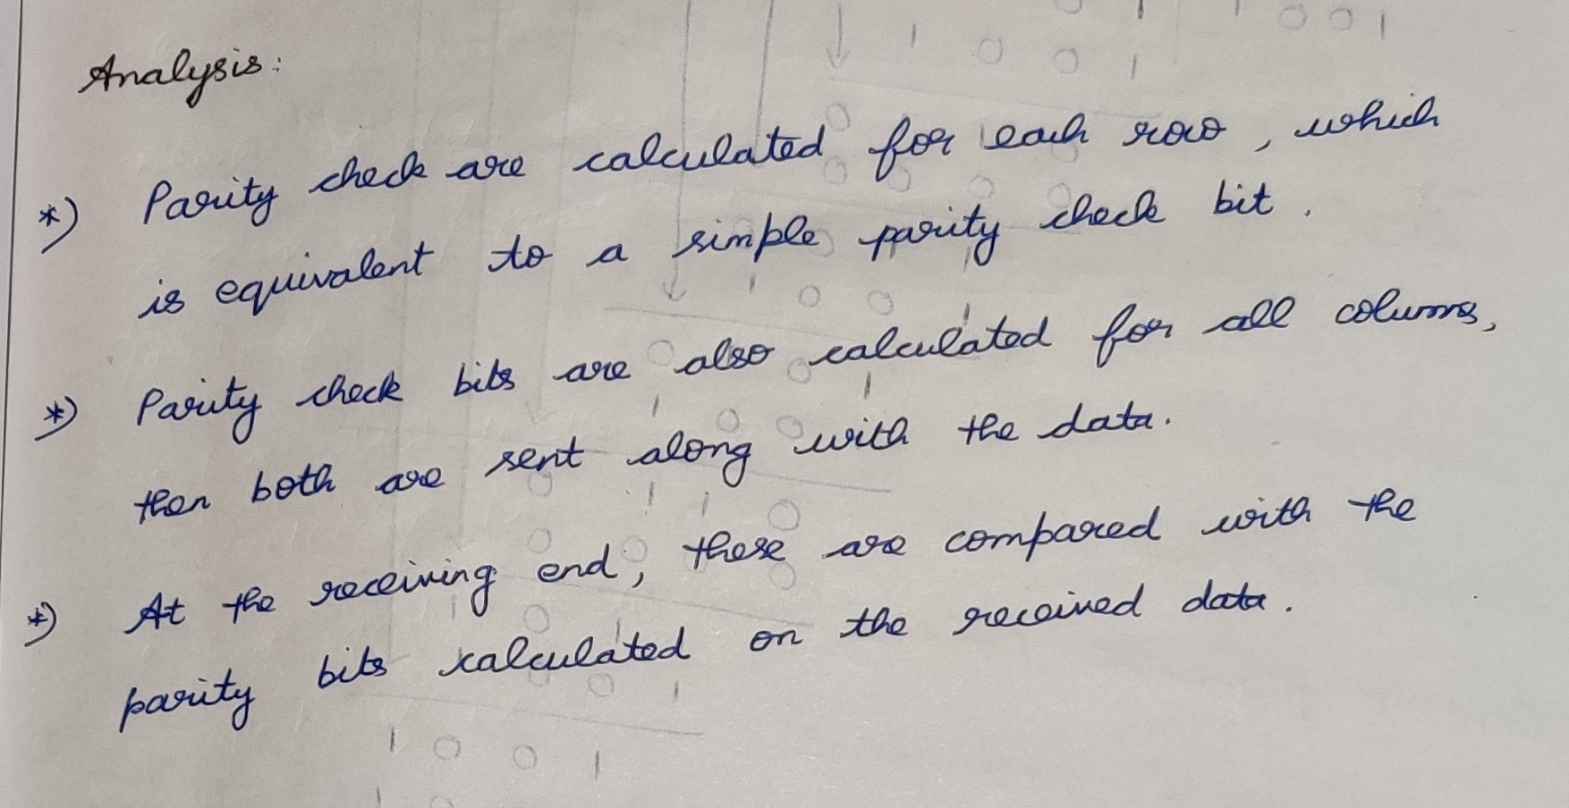 Analysis:
*) Parity check are calculated for each row, which
is equivalent to a simple parity check bit.
*) Parity check bits are also calculated for all columns,
then both are sent along with the data.
*) At the receiving end, these are compared with the
parity bits calculated on the received data.